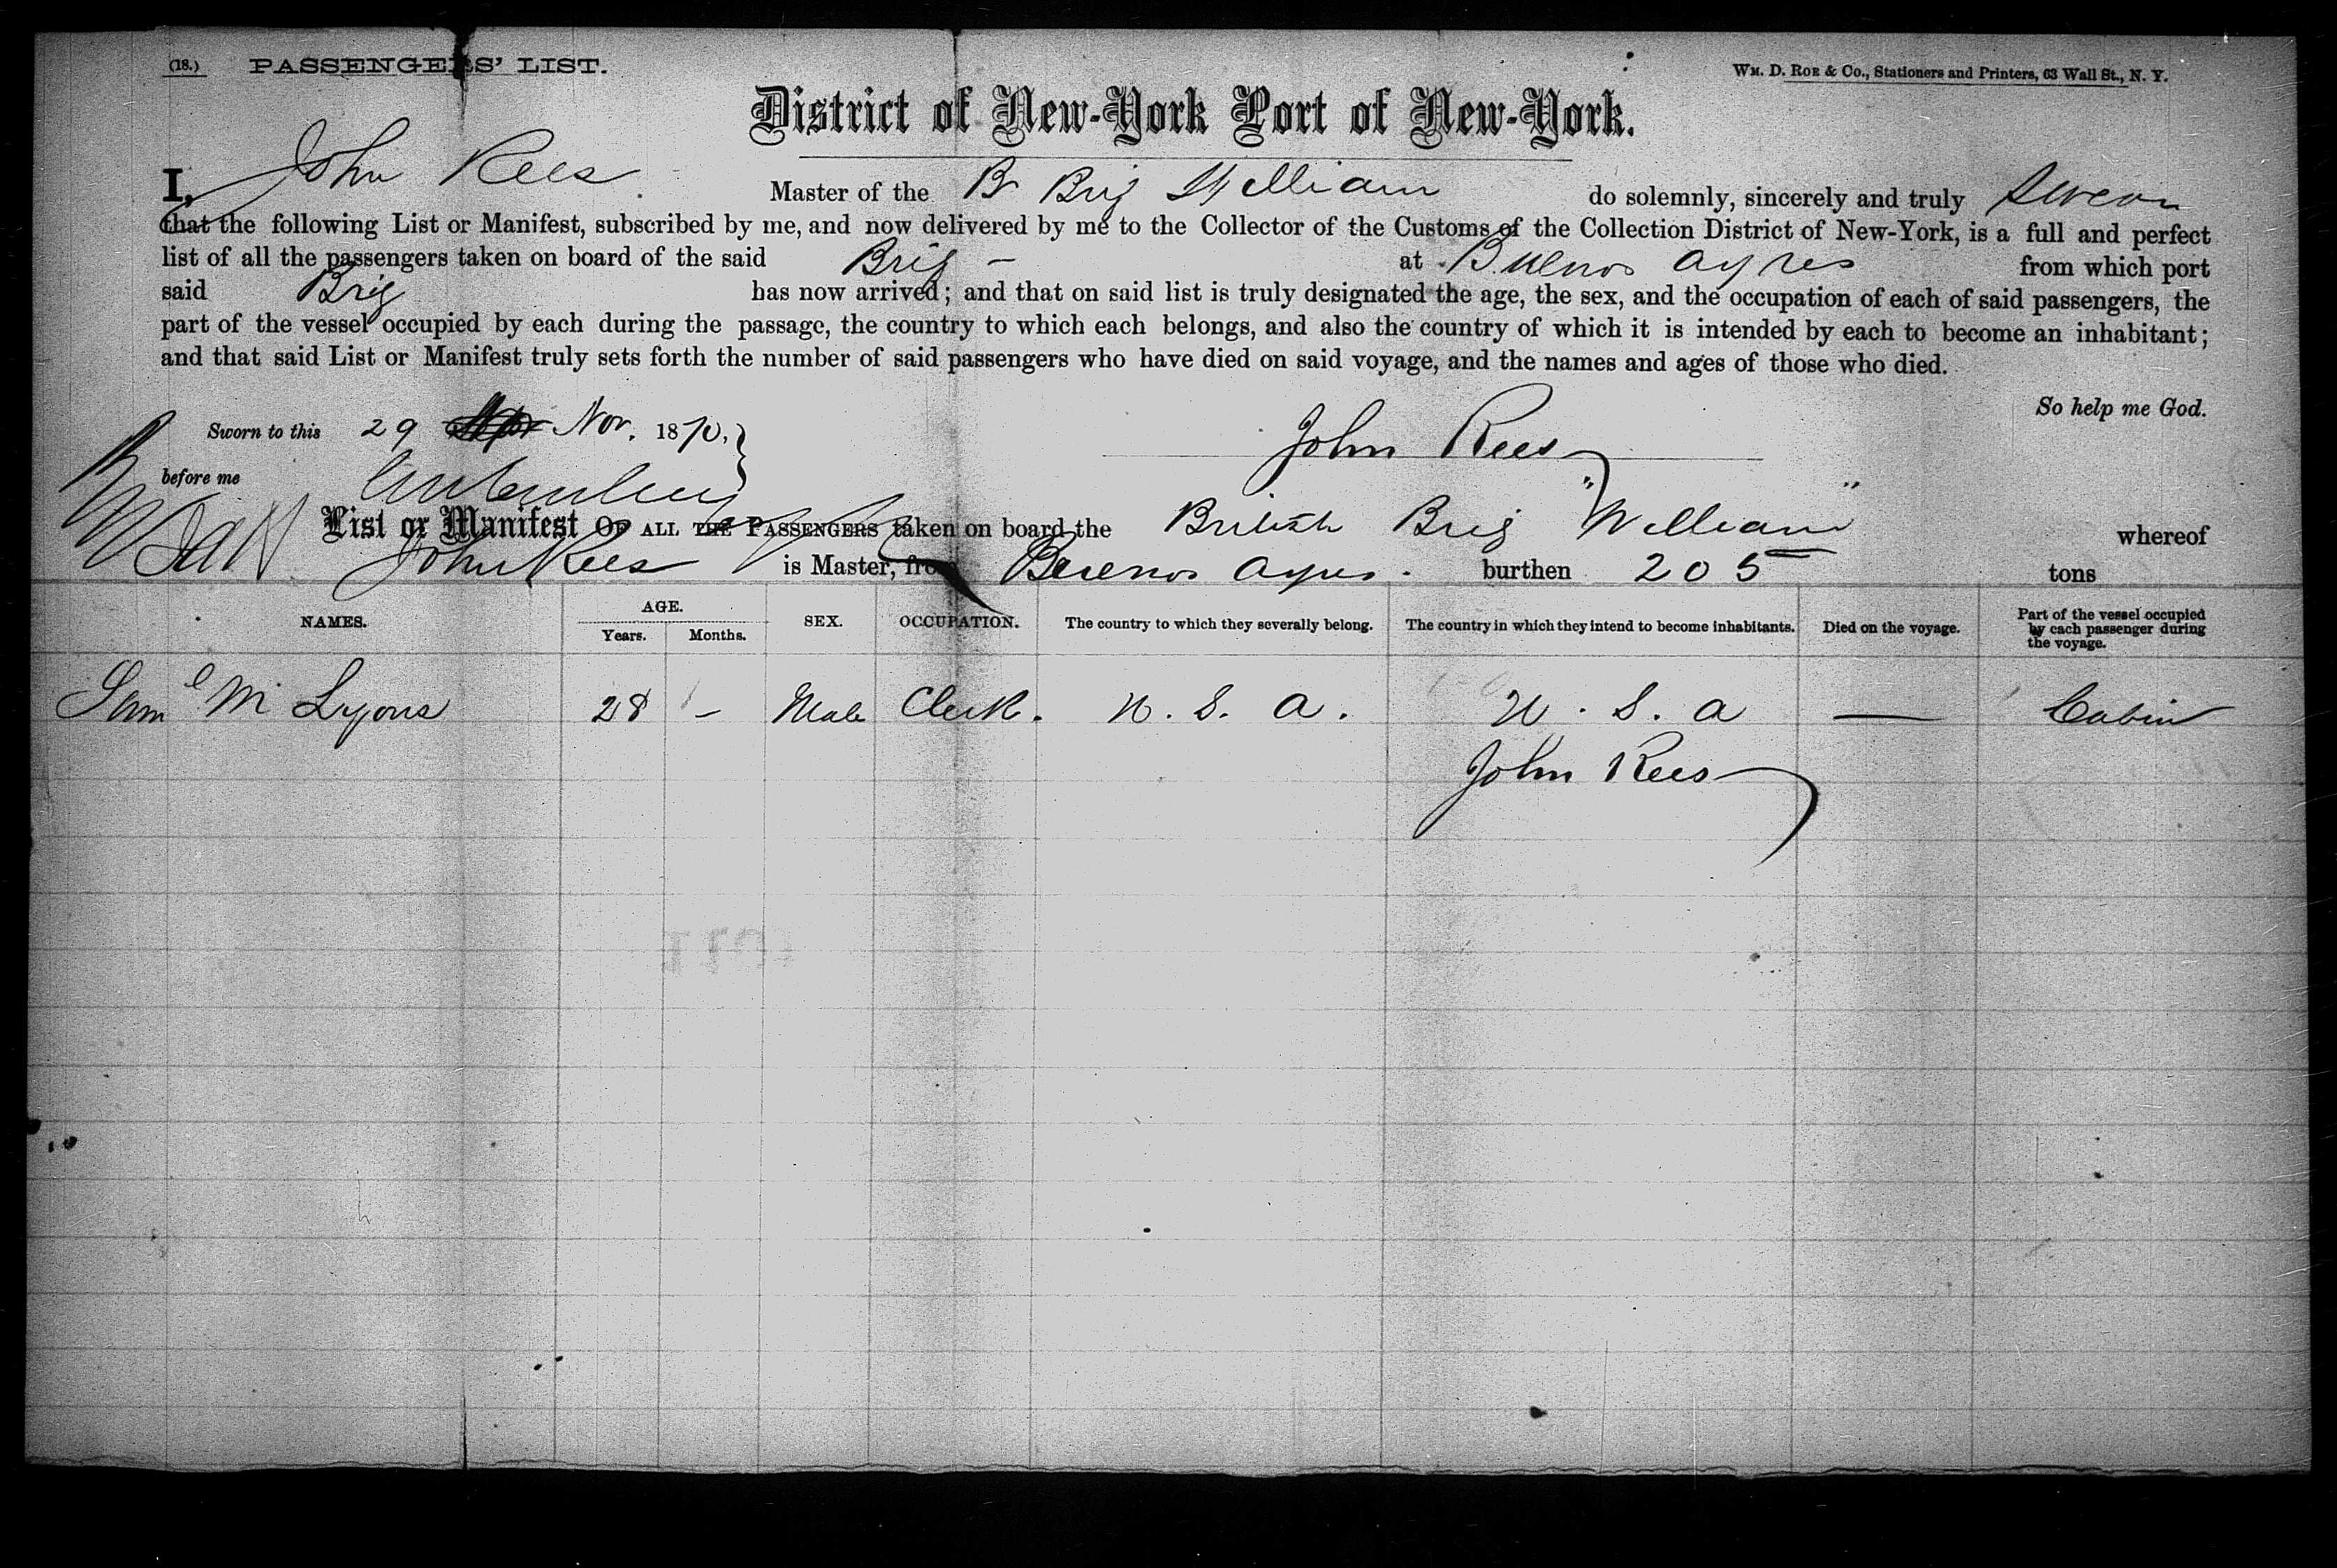 (18.) PASSENGERS' LIST. Wm. D. Roe & Co., Stationers and Printers, 63 Wall St., N. Y.
District of New-York Port of New-York.
I, John Rees Master of the Br Brig William do solemnly, sincerely and truly swear
that the following List or Manifest, subscribed by me, and now delivered by me to the Collector of the Customs of the Collection District of New-York, is a full and perfect
list of all the passengers taken on board of the said Brig - at Buenos Ayres from which port
said Brig has now arrived; and that on said list is truly designated the age, the sex, and the occupation of each of said passengers, the
part of the vessel occupied by each during the passage, the country to which each belongs, and also the country of which it is intended by each to become an inhabitant;
and that said List or Manifest truly sets forth the number of said passengers who have died on said voyage, and the names and ages of those who died.
So help me God.
Sworn to this 29 Nov. 1870, John Rees
before me
List or Manifest OF ALL THE PASSENGERS taken on board the British Brig "William" whereof
John Rees is Master, from Buenos Ayres. burthen 205 tons
NAMES. AGE. Years. Months. SEX. OCCUPATION. The country to which they severally belong. The country in which they intend to become inhabitants. Died on the voyage. Part of the vessel occupied by each passenger during the voyage.
Saml M Lyons 28 - Male Clerk. U. S. A. U. S. A — Cabin
John Rees